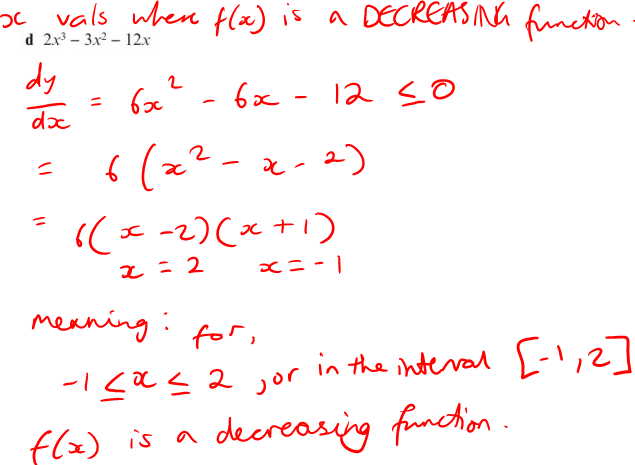 x vals where f(x) is a DECREASING function.
d 2x³ – 3x² – 12x
dy/dx = 6x² - 6x - 12 ≤ 0
= 6(x² - x - 2)
= 6(x - 2)(x + 1)
x = 2 x = -1
meaning: for,
-1 ≤ x ≤ 2, or in the interval [-1, 2]
f(x) is a decreasing function.